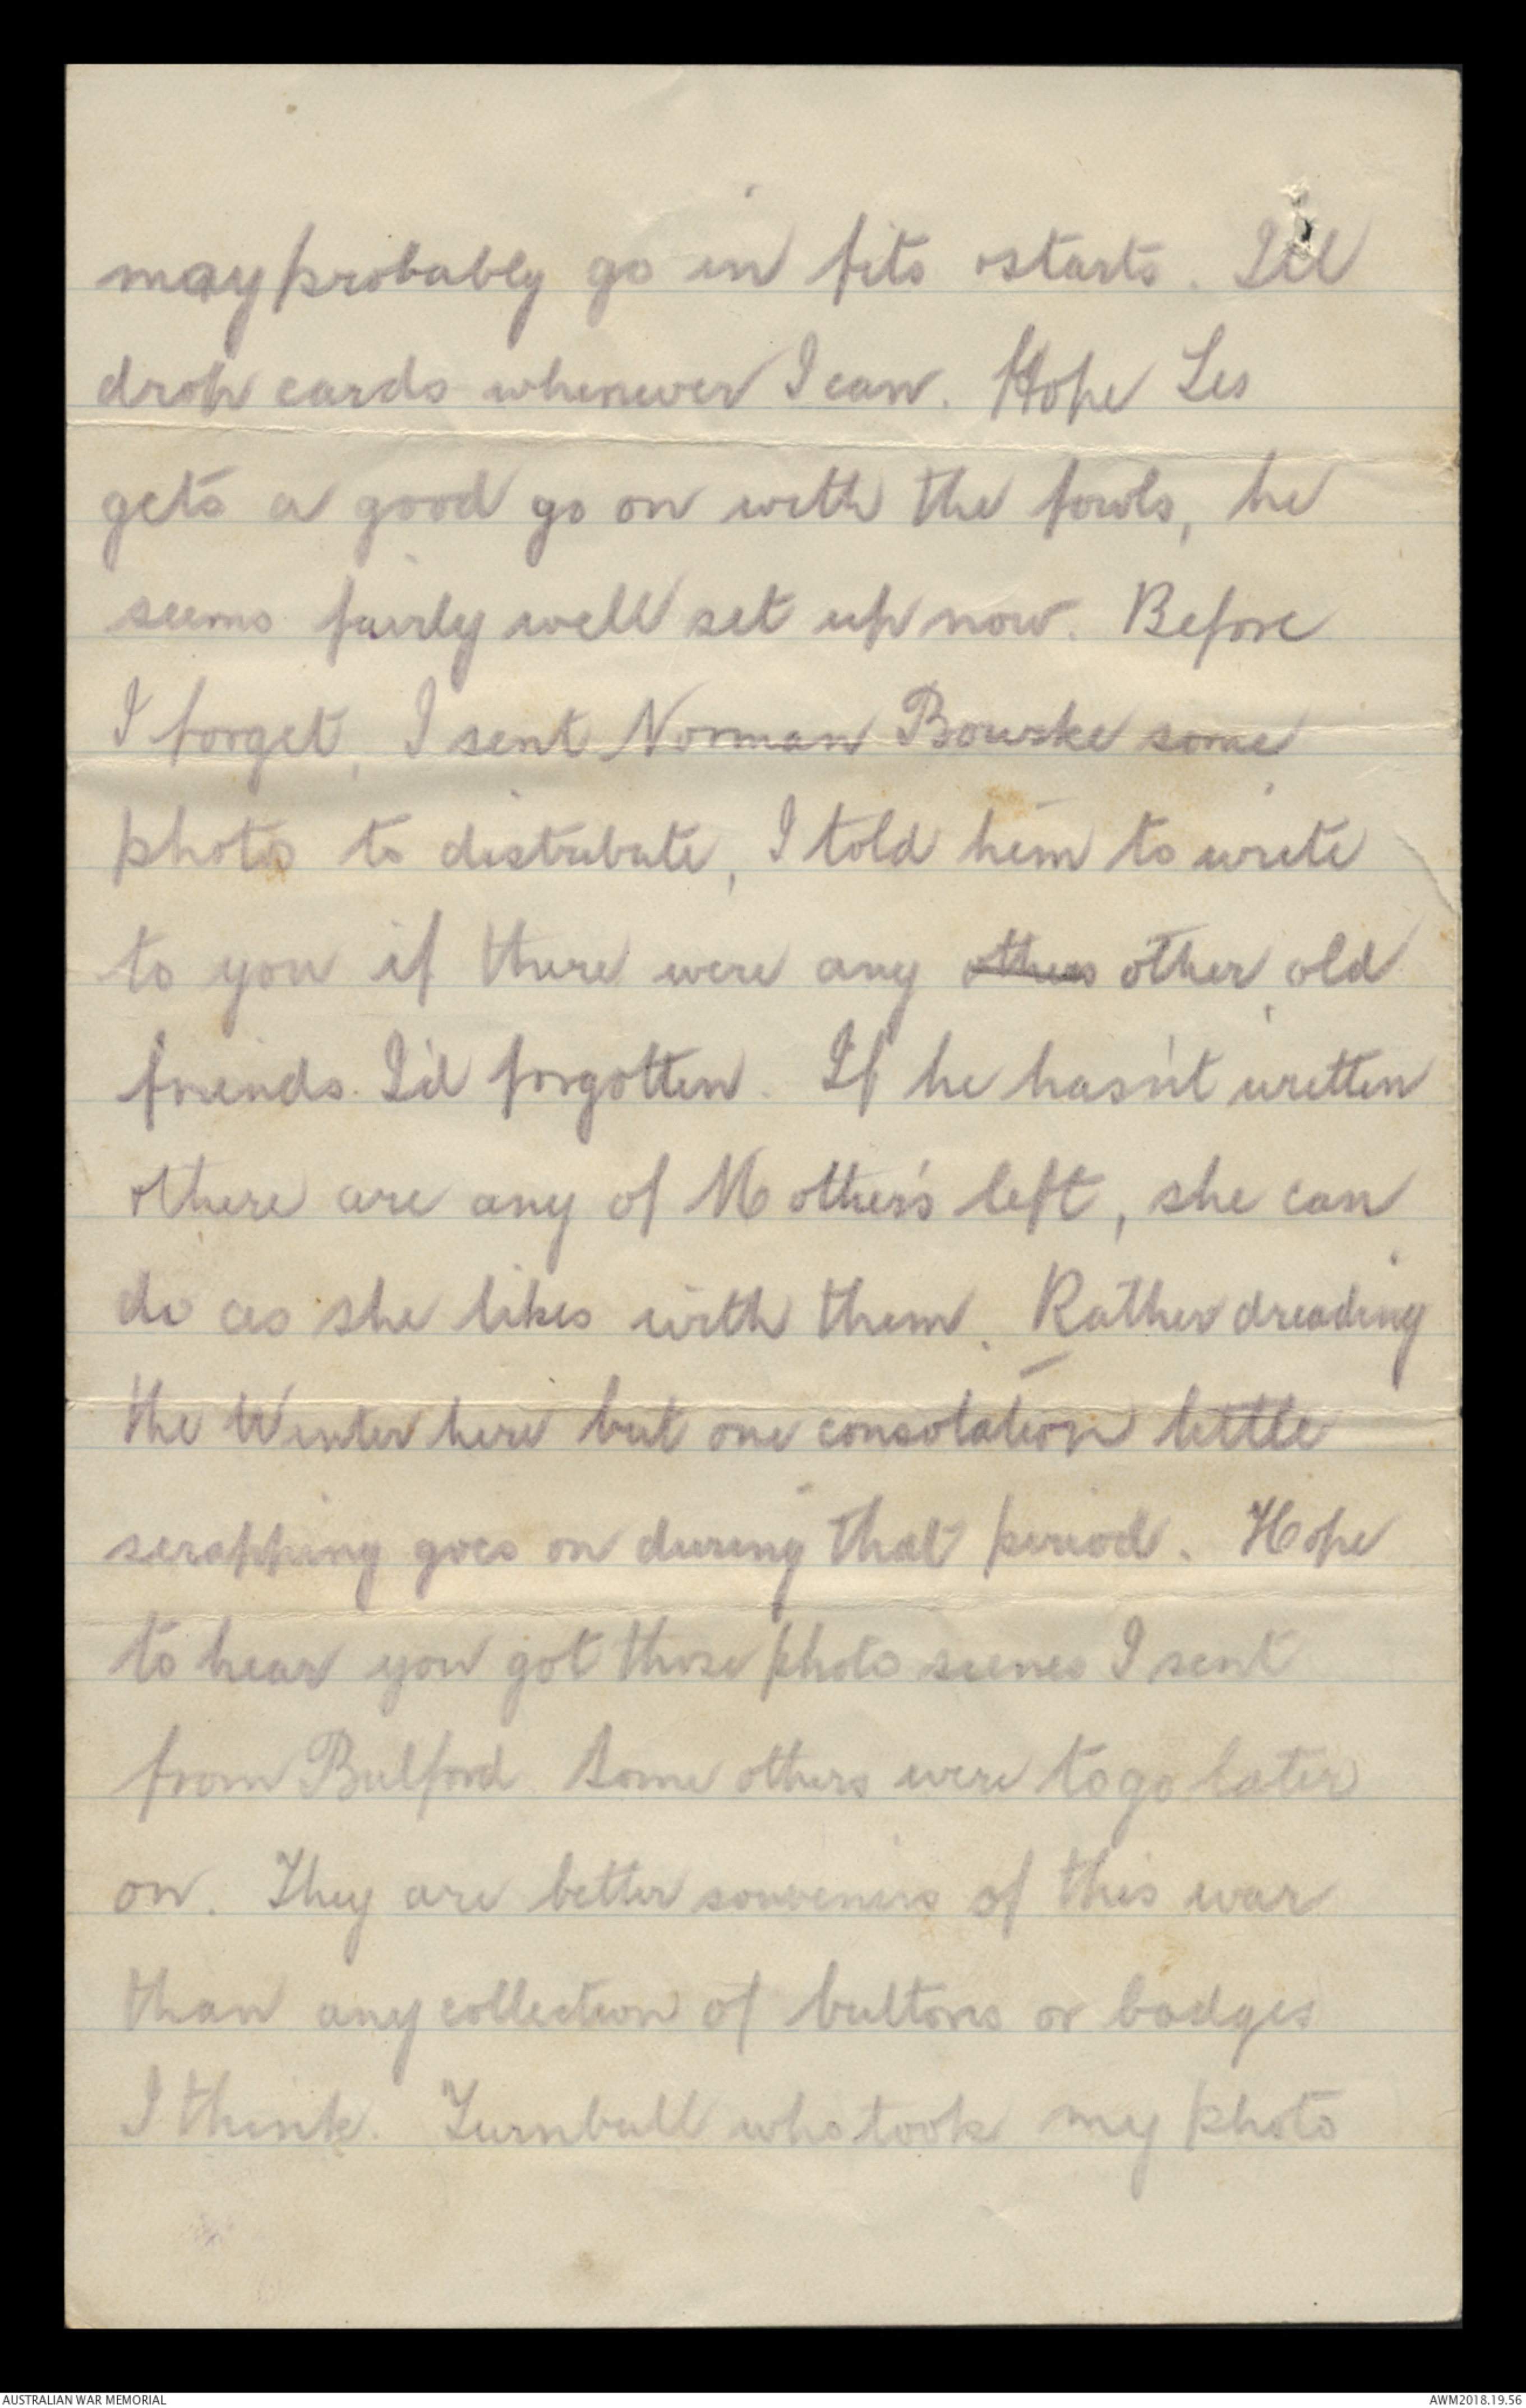 may probably go in fits & starts. I'll
drop cards whenever I can. Hope Les
gets a good go on with the fowls, he
seems fairly well set up now. Before
I forget, I sent Norman Bourke some
photos to distribute, I told him to write
to you if there were any others other old
friends I'd forgotten. If he hasn't written
& there are any of Mother's left, she can
do as she likes with them. Rather dreading
the Winter here but one consolation little
scrapping goes on during that period. Hope
to hear you got those photo scenes I sent
from Bulford. Some others were to go later
on. They are better souvenirs of this war
than any collection of buttons or badges
I think. Turnbull who took my photo
AUSTRALIAN WAR MEMORIAL
AWM2018.19.56